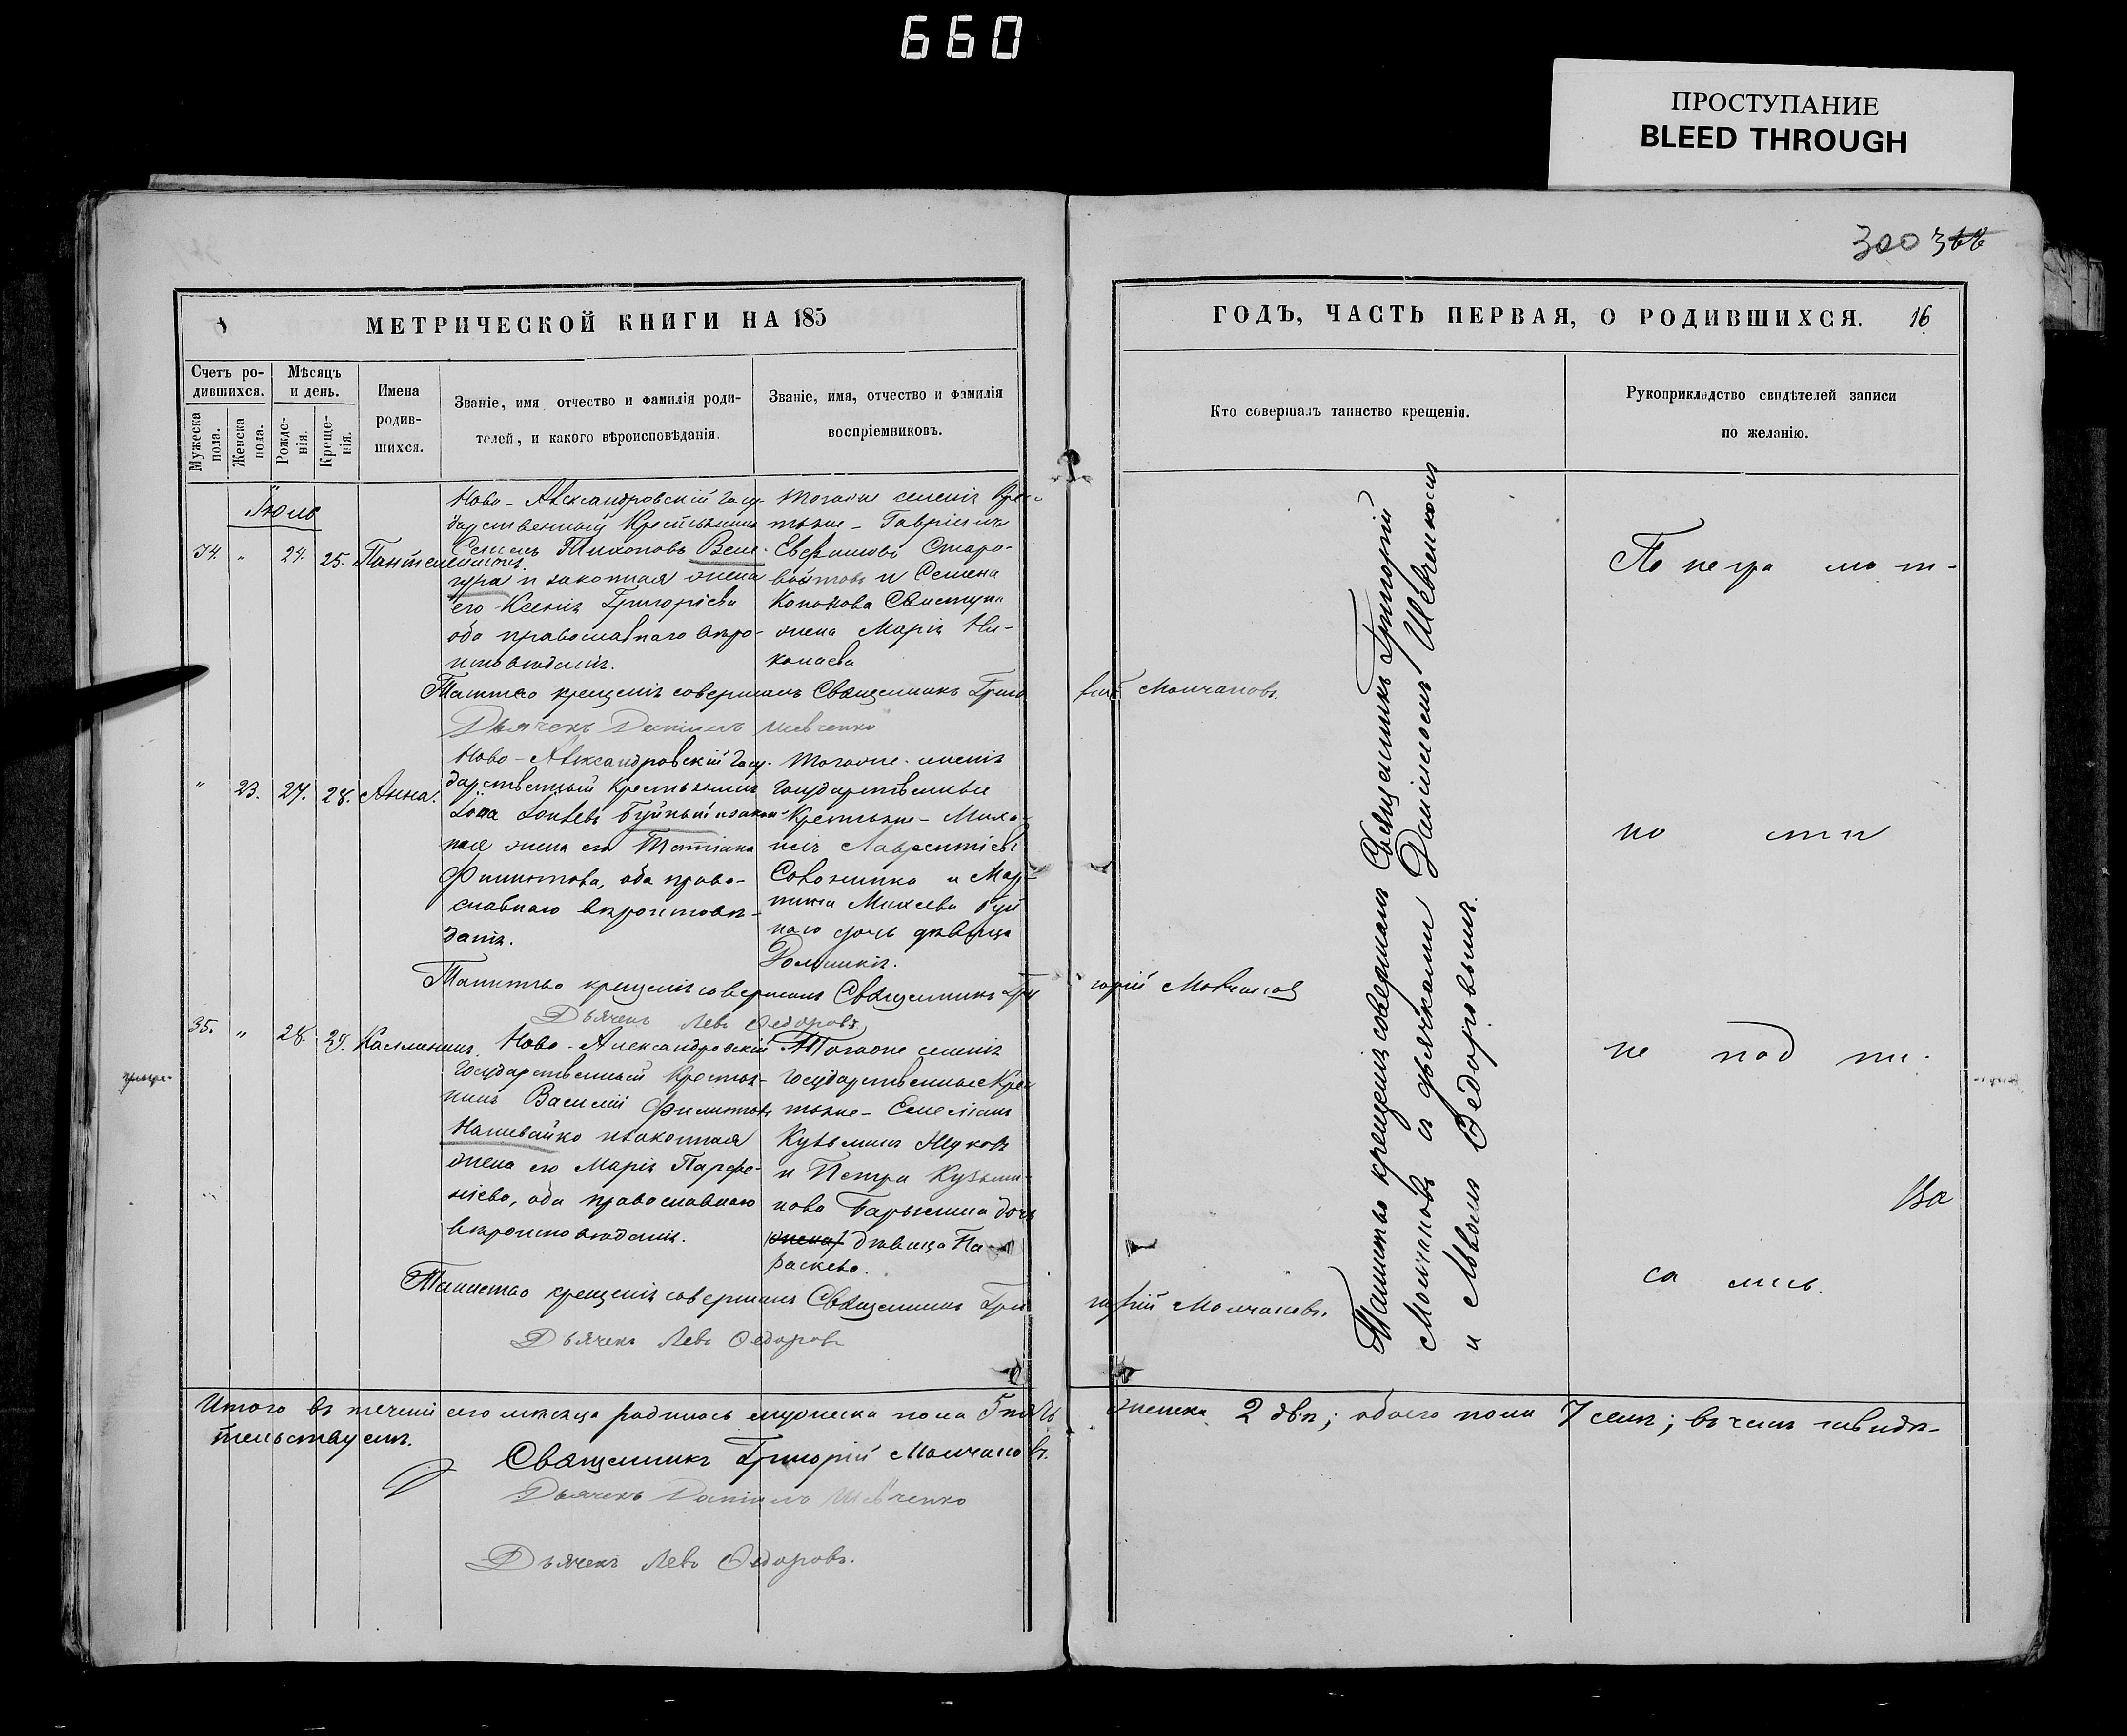 660
ПРОСТУПАНИЕ
BLEED THROUGH
300
МЕТРИЧЕСКОЙ КНИГИ НА 185
ГОДЪ, ЧАСТЬ ПЕРВАЯ, О РОДИВШИХСЯ. 16.
Счетъ ро-
дившихся.
Мѣсяцъ
и день.
Мужеска
пола.
Женска
пола.
Рожде-
нія.
Креще-
нія.
Имена
родив-
шихся.
Званіе, имя отчество и фамилія роди-
телей, и какого вѣроисповѣданія.
Званіе, имя, отчество и фамилія
воспріемниковъ.
Кто совершалъ таинство крещенія.
Рукоприкладство свидѣтелей записи
по желанію.
Іюль
34. " 24. 25. Пантелеимонъ.
Ново-Александровскій Госу-
дарственный Крестьянинъ
Семенъ Тихоновъ
и законная жена
его Ксенія Григорієва
оба православнаго вѣро-
исповѣданія.
Тогоже селенія Крес-
тьяне - Гавріилъ
Евфимовъ Старо-
войтовъ и Семена
Кононова Свистуна
жена Марія Ни-
колаева
Таинство крещенія совершалъ Священникъ Григо
рій Молчановъ.
Дьячекъ Даніилъ Шевченко
" 23. 27. 28. Анна.
Ново-Александровскій Госу-
дарственный Крестьянинъ
Буйный и закон-
ная жена его Татіана
Филиппова, оба право-
славнаго вѣроисповѣ-
данія.
Тогоже селенія
Государственные
Крестьяне - Миха-
илъ Лаврентіевъ
и Мар-
тина Михеева Буй
наго дочь дѣвица
Домникія.
Таинство крещенія совершалъ Священникъ Гри
горій Молчановъ
Дьячекъ Левъ Ѳедоровъ
35. " 28. 29. Каллиникъ.
Ново-Александровскій
Государственный Крестья-
нинъ Василій Филипповъ
Наливайко и законная
жена его Марія Парфе-
нієва, оба православнаго
вѣроисповѣданія.
Тогоже селенія
Государственные Крес
тьяне - Емеліанъ
Кузьминъ Жуковъ
и Петра Кузьми-
нова дочь
жена дѣвица Па-
раскева.
Таинство крещенія совершалъ Священникъ Гри
горій Молчановъ.
Дьячекъ Левъ Ѳедоровъ
Таинство крещенія совершалъ Священникъ Григорій
Молчановъ съ дьячками Даніиломъ Шевченкомъ
и Львомъ Ѳедоровымъ.
По негра мот-
но сти
не под пи.
Ва
са лись.
Итого въ теченіи сего мѣсяца родилось мужеска пола 5 пять женска 2 двѣ; обоего пола 7 семь; въ чемъ свидѣ-
тельствуемъ.
Священникъ Григорій Молчановъ.
Дьячекъ Даніилъ Шевченко
Дьячекъ Левъ Ѳедоровъ.